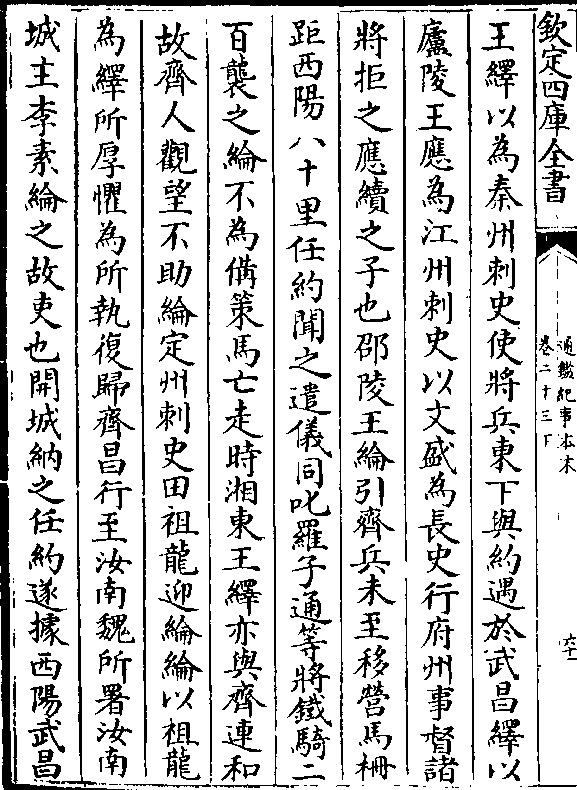 欽定四庫全書
通鑑紀事本末
卷二十三下
六十一
王繹以為秦州刺史使將兵東下與約遇於武昌繹以
廬陵王應為江州刺史以文盛為長史行府州事督諸
將拒之應續之子也邵陵王綸引齊兵未至移營馬柵
距西陽八十里任約聞之遣儀同叱羅子通等將鐵騎二
百襲之綸不為備策馬亡走時湘東王繹亦與齊連和
故齊人觀望不助綸定州刺史田祖龍迎綸綸以祖龍
為繹所厚懼為所執復歸齊昌行至汝南魏所署汝南
城主李素綸之故吏也開城納之任約遂據西陽武昌